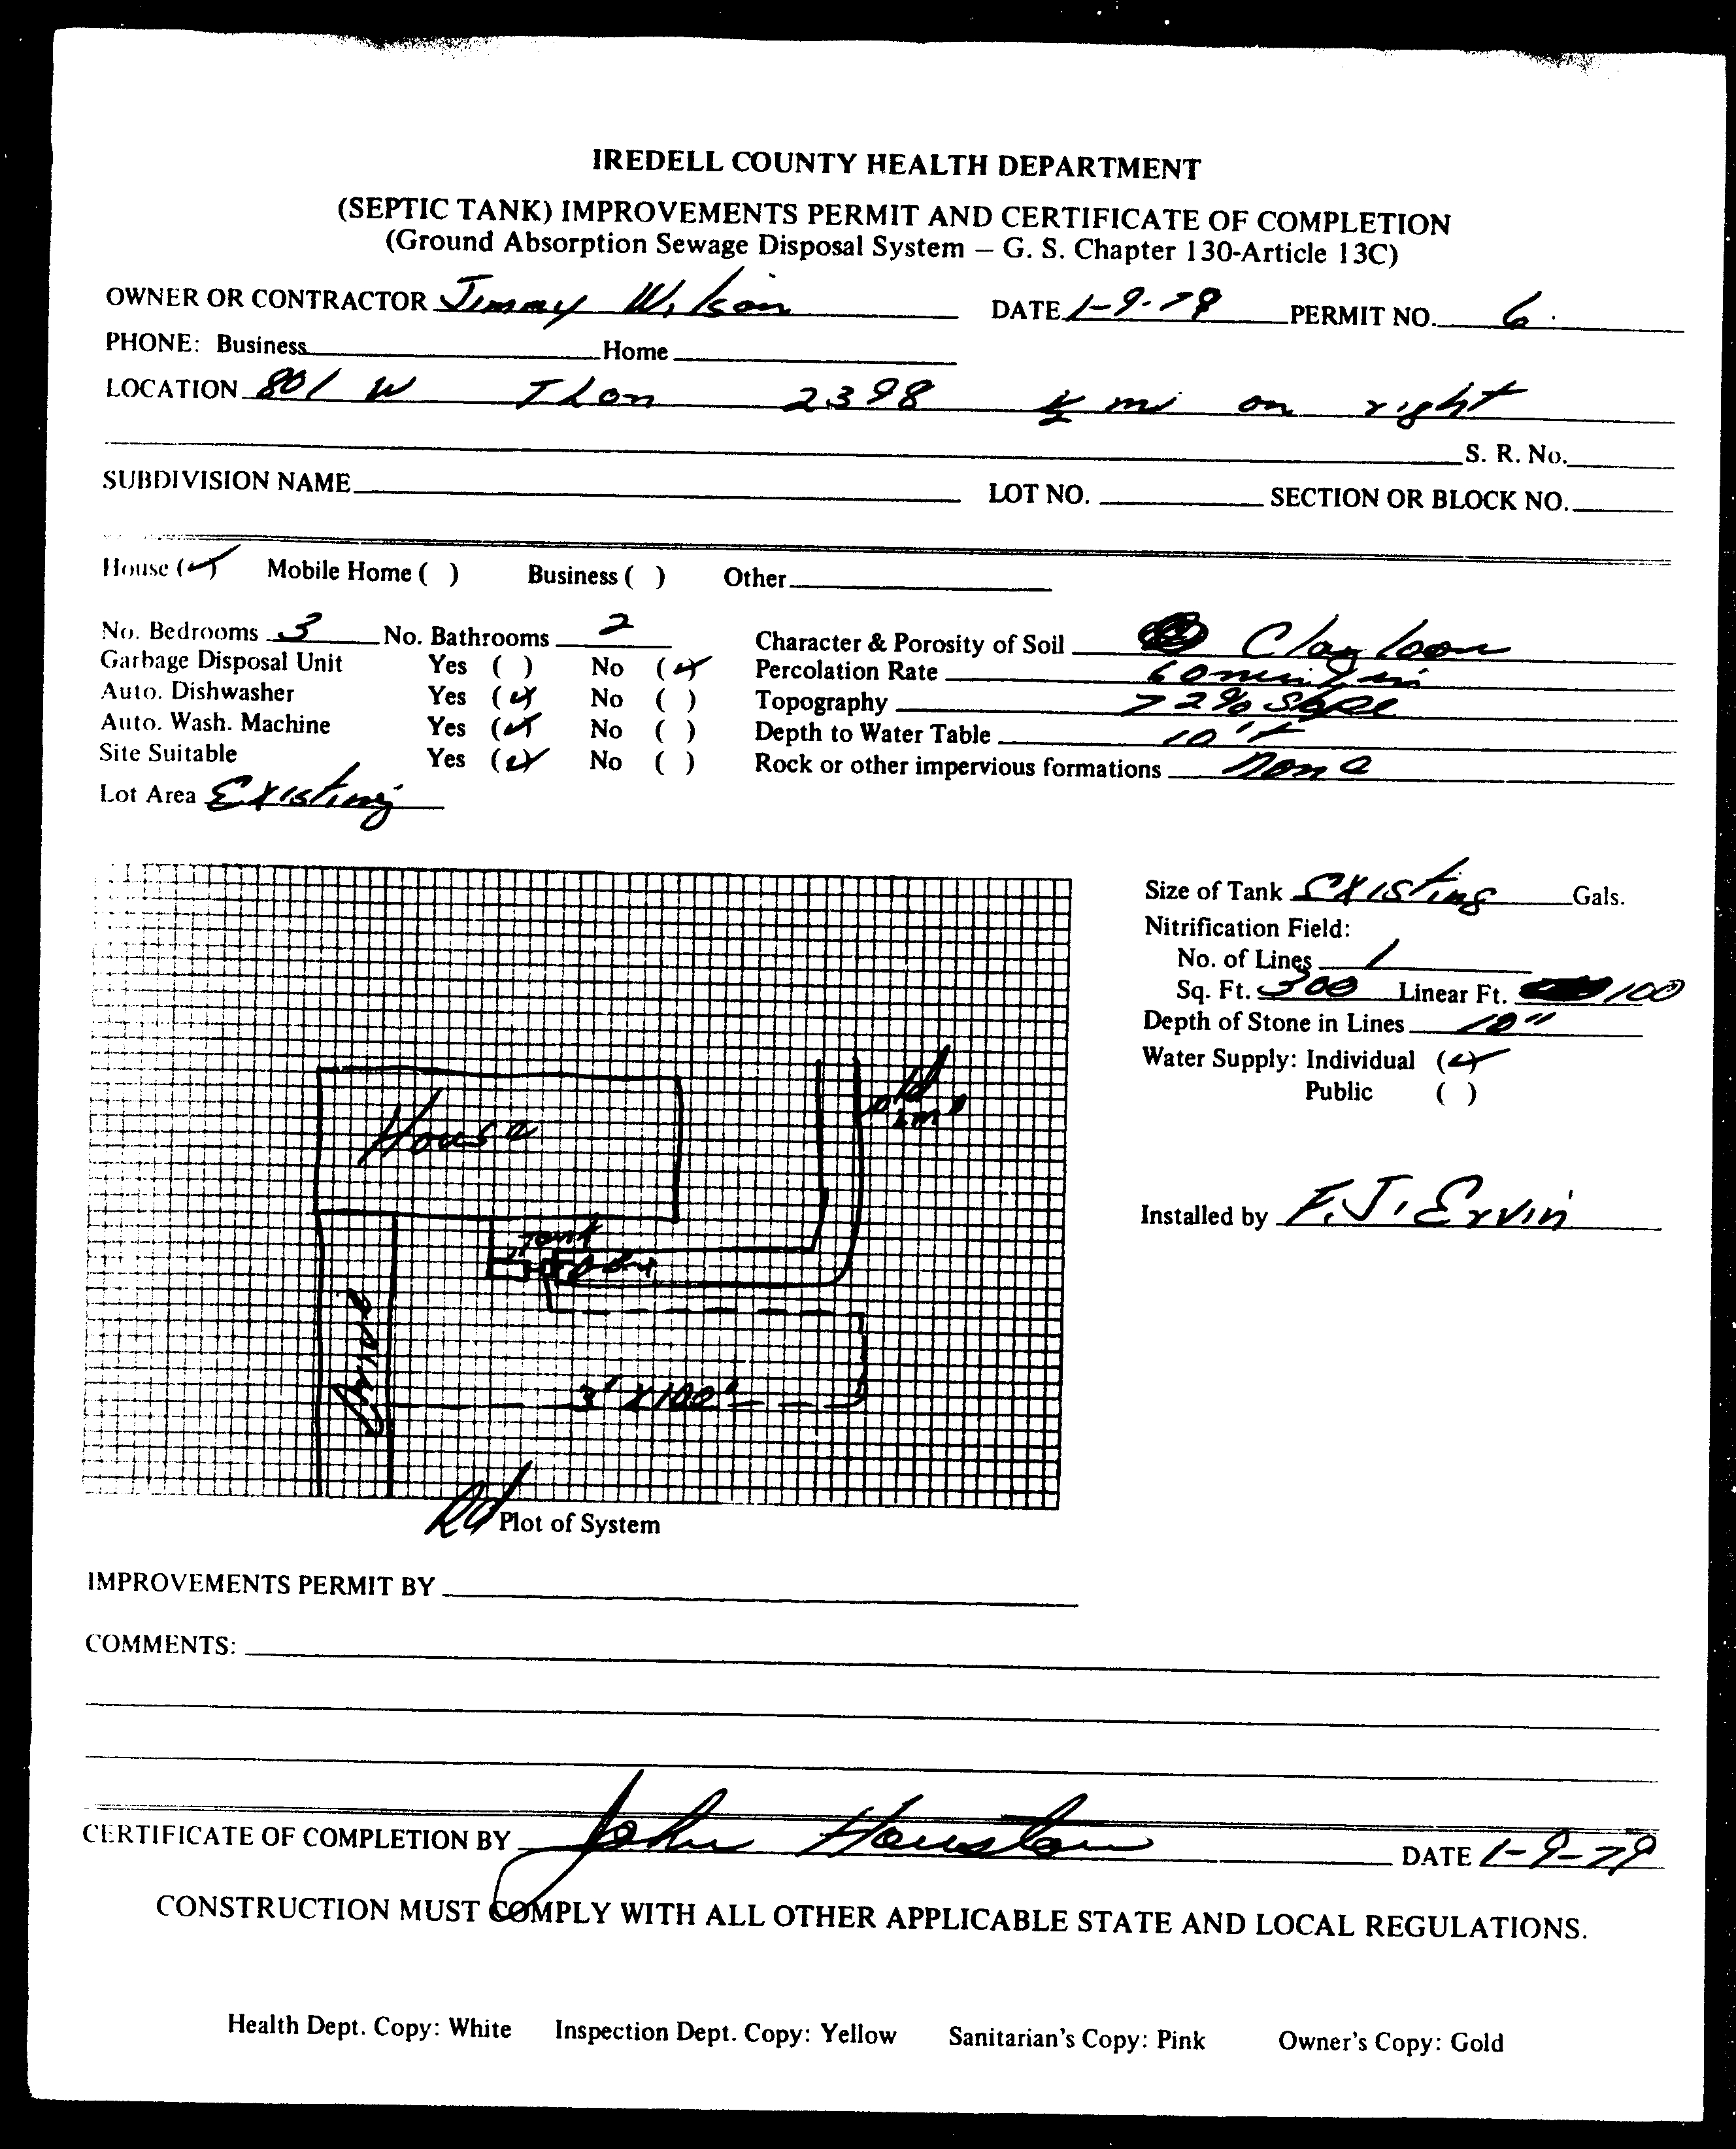 IREDELL COUNTY HEALTH DEPARTMENT
(SEPTIC TANK) IMPROVEMENTS PERMIT AND CERTIFICATE OF COMPLETION
(Ground Absorption Sewage Disposal System – G. S. Chapter 130-Article 13C)
OWNER OR CONTRACTOR Jimmy Wilson DATE 1-9-79 PERMIT NO. 6
PHONE: Business Home
LOCATION 801 W TL on 2398 ½ mi on right
S. R. No.
SUBDIVISION NAME LOT NO. SECTION OR BLOCK NO.
House (✓) Mobile Home ( ) Business ( ) Other
No. Bedrooms 3 No. Bathrooms 2 Character & Porosity of Soil Clay loam
Garbage Disposal Unit Yes ( ) No (✓) Percolation Rate 60 min/in
Auto. Dishwasher Yes (✓) No ( ) Topography > 2% Slope
Auto. Wash. Machine Yes (✓) No ( ) Depth to Water Table 10'+
Site Suitable Yes (✓) No ( ) Rock or other impervious formations None
Lot Area Existing
Size of Tank Existing Gals.
Nitrification Field:
No. of Lines 1
Sq. Ft. 300 Linear Ft. 100
Depth of Stone in Lines 10"
Water Supply: Individual (✓)
Public ( )
Installed by F.J. Ervin
old
Line
House
Tank
Drive
3' X 100'
Rd
Plot of System
IMPROVEMENTS PERMIT BY
COMMENTS:
CERTIFICATE OF COMPLETION BY John Houston DATE 1-9-79
CONSTRUCTION MUST COMPLY WITH ALL OTHER APPLICABLE STATE AND LOCAL REGULATIONS.
Health Dept. Copy: White Inspection Dept. Copy: Yellow Sanitarian's Copy: Pink Owner's Copy: Gold